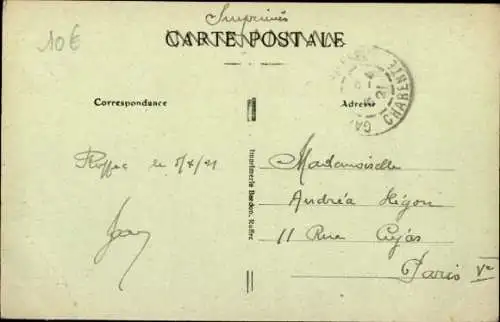 Imprimés
10€
CARTE POSTALE
Correspondance
Adresse
CHARENTE
21
Imprimerie Baudon, Ruffec
Ruffec le 5/4/21
Mademoiselle
Andréa Hégon
11 Rue Cujas
Paris Ve